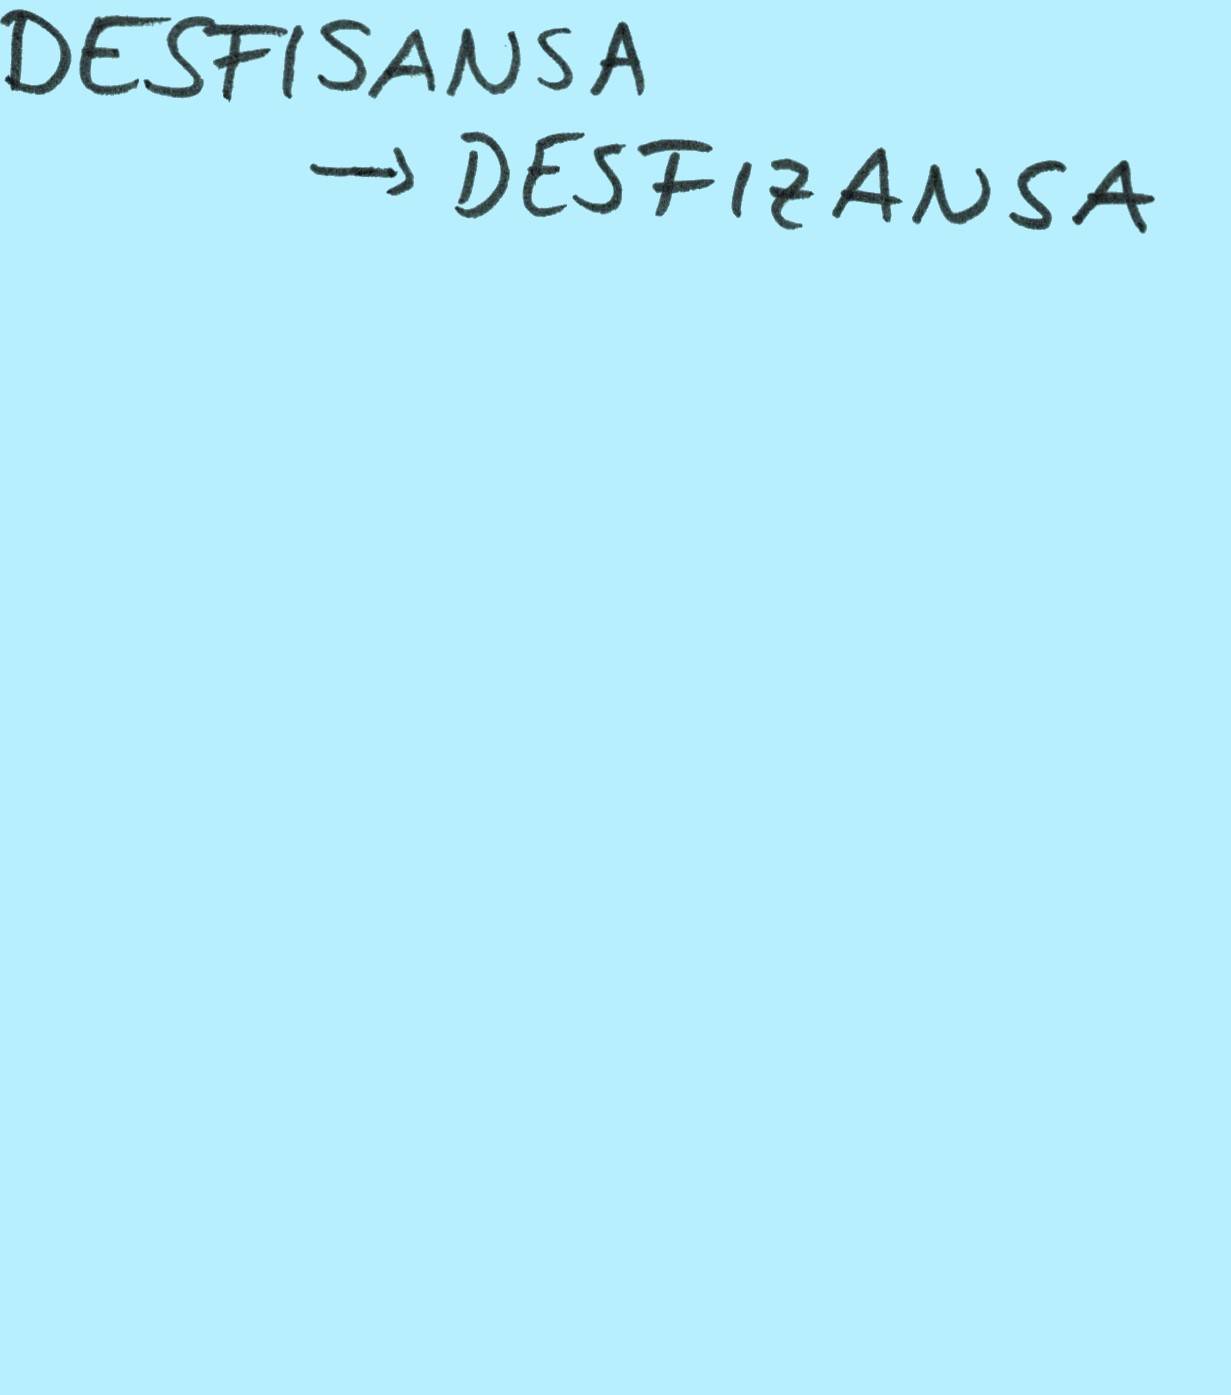 DESFISANSA
→ DESFIZANSA